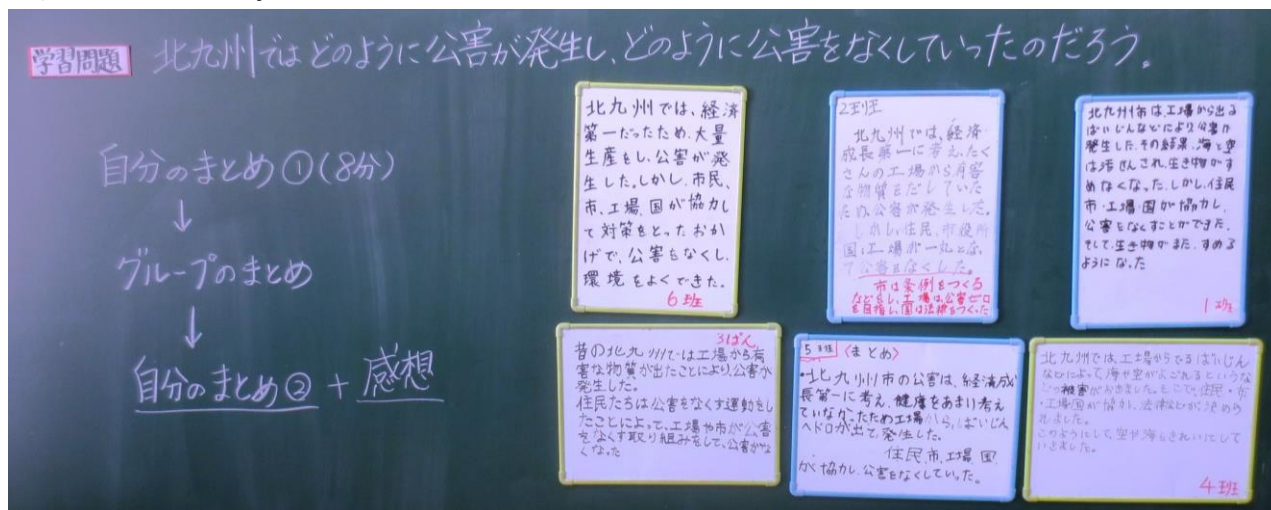 学習問題 北九州ではどのように公害が発生し、どのように公害をなくしていったのだろう。
自分のまとめ①(8分)
↓
グループのまとめ
↓
自分のまとめ② + 感想
北九州では、経済
第一だったため、大量
生産をし、公害が発
生した。しかし、市民、
市、工場、国が協力し
て対策をとったおか
げで、公害をなくし、
環境をよくできた。
6班
2班
北九州では、経済
成長第一に考え、たく
さんの工場から有害
な物質をだしていた
ため、公害が発生した。
しかし、住民、市役所
国、工場が一丸となっ
て公害をなくした。
市は条例をつくる
などをし、工場は、公害ゼロ
を目指し、国は法律をつくった
北九州市は、工場から出る
ばいじんなどにより公害が
発生した。その結果、海と空
は汚せんされ、生き物がす
めなくなった。しかし、住民
市・工場・国が協力し、
公害をなくすことができた。
そして、生き物がまた、すめる
ようになった
1班
3ぱん
昔の北九州では工場から有
害な物質が出たことにより、公害が
発生した。
住民たちは公害をなくす運動をし
たことによって、工場や市が公害
をなくす取り組みをして、公害がな
くなった
5班 〈まとめ〉
・北九州市の公害は、経済成
長第一に考え、健康をあまり考え
ていなかったため工場から、ばいじん
ヘドロが出て、発生した。
住民、市、工場、国
が協力し、公害をなくしていった。
北九州では、工場からでるばいじん
などによって、海や空がよごれるというな
どの被害がおきました。そこで、住民・市
・工場・国が協力し、法律などが、決めら
れました。
このようにして、空や海もきれいにして
いきました。
4班